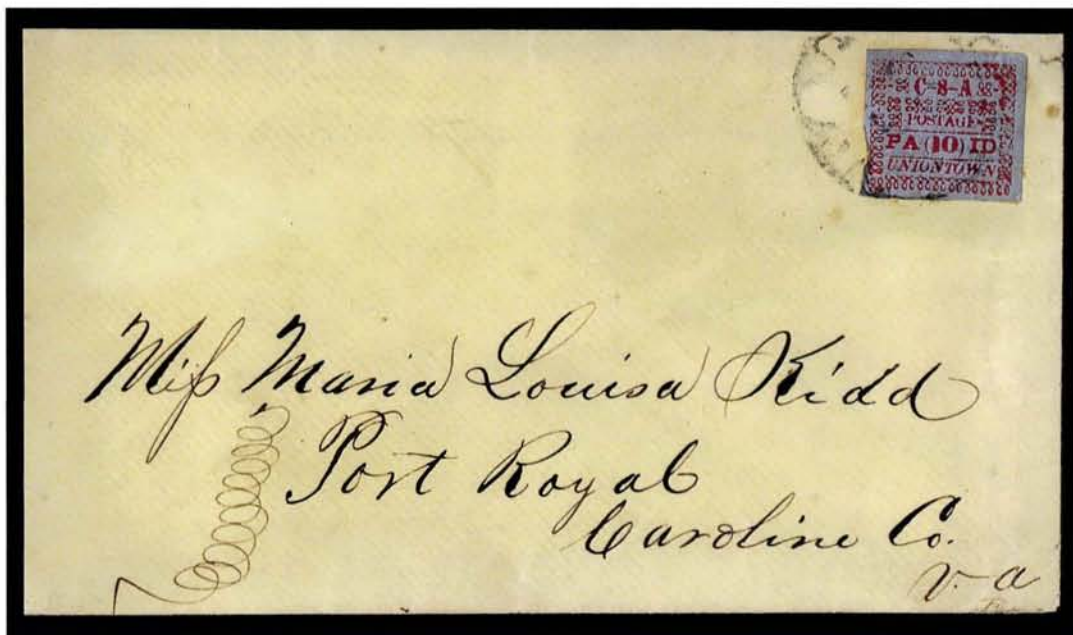 C-S-A
POSTAGE
PA (10) ID
UNIONTOWN
Miſs Maria Louisa Kidd
Port Royal
Caroline Co.
Va